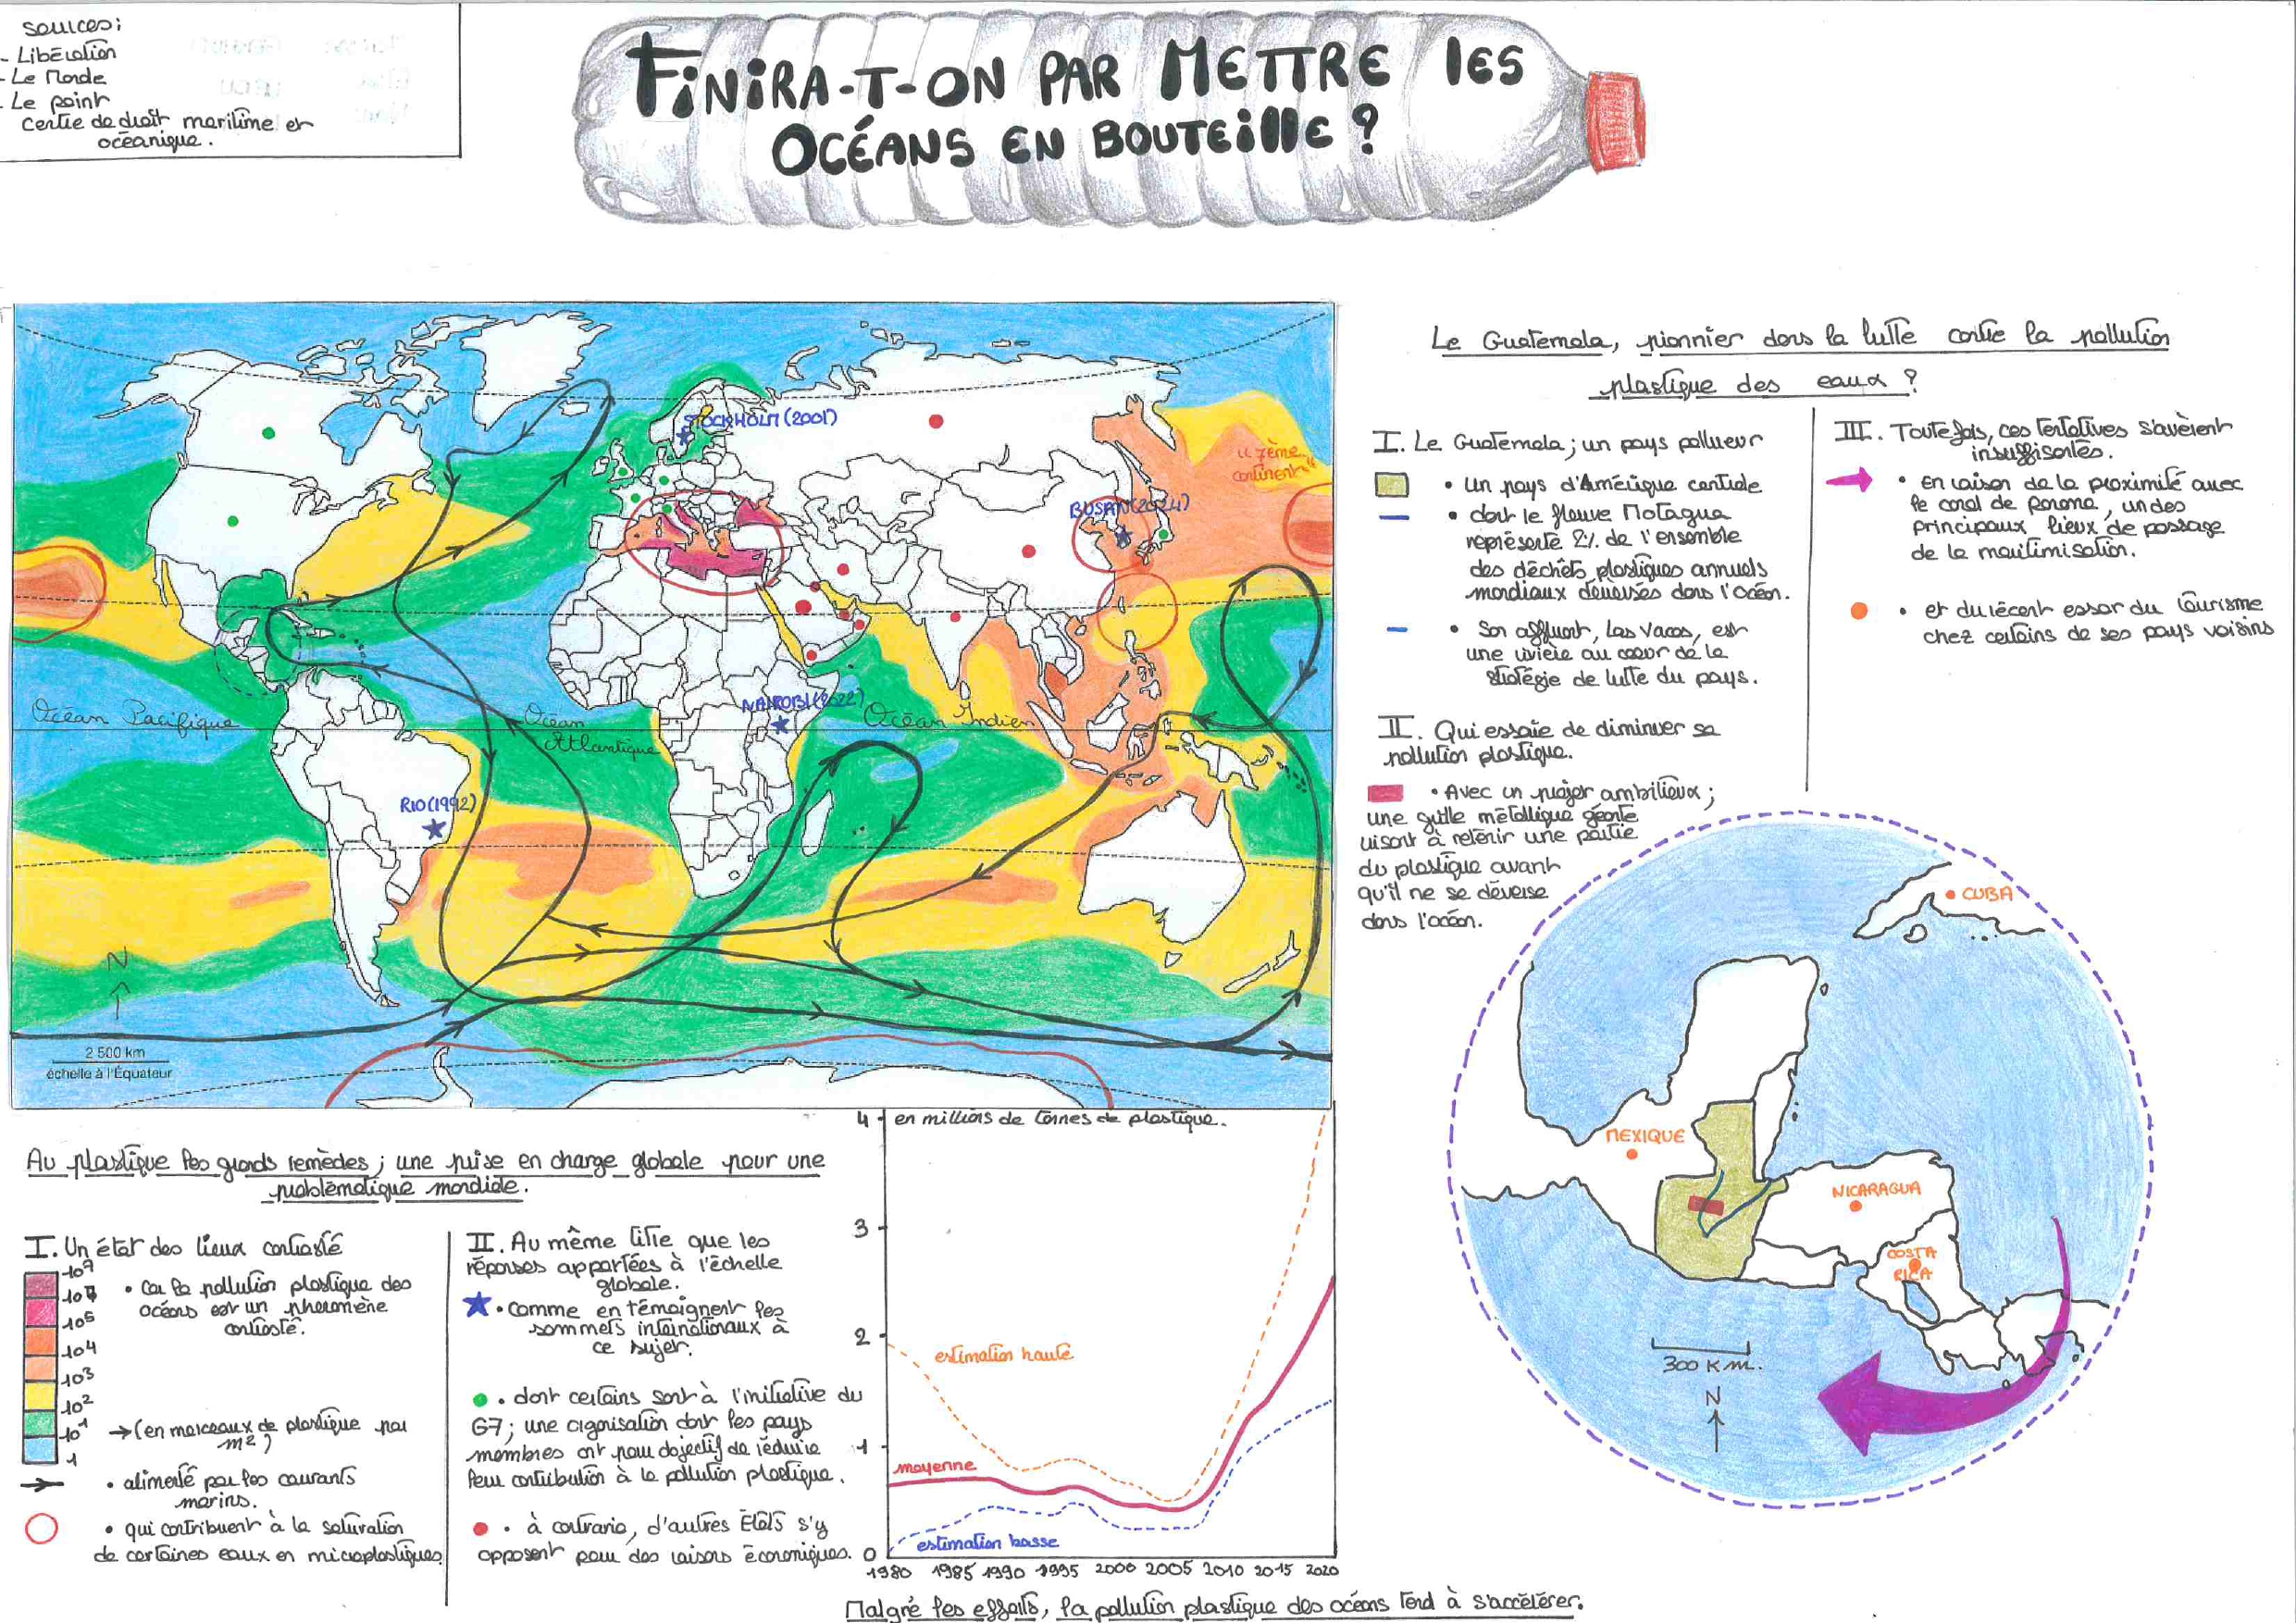 Sources:
- Libération
- Le Monde
- Le point
Centre de droit maritime et
océanique.
FINIRA-T-ON PAR METTRE les
OCÉANS EN BOUTEIllE ?
STOCKHOLM (2001)
"7ème
continent"
BUSAN (2024)
NAIROBI (2022)
Océan Pacifique
Océan
Atlantique
Océan Indien
RIO (1992)
N
2 500 km
échelle à l'Équateur
Le Guatemala, pionnier dans la lutte contre la pollution
plastique des eaux ?
I. Le Guatemala ; un pays pollueur
• Un pays d'Amérique centrale
• dont le fleuve Motagua
représente 2% de l'ensemble
des déchets plastiques annuels
mondiaux déversés dans l'océan.
• Son affluent, Las Vacas, est
une rivière au cœur de la
stratégie de lutte du pays.
II. Qui essaie de diminuer sa
pollution plastique.
• Avec un projet ambitieux ;
une grille métallique géante
visant à retenir une partie
du plastique avant
qu'il ne se déverse
dans l'océan.
III. Toutefois, ces tentatives s'avèrent
insuffisantes.
• en raison de la proximité avec
le canal de panama, un des
principaux lieux de passage
de la maritimisation.
• et du récent essor du tourisme
chez certains de ses pays voisins
CUBA
MEXIQUE
NICARAGUA
COSTA
RICA
300 Km.
N
Au plastique les grands remèdes ; une prise en charge globale pour une
problématique mondiale.
I. Un état des lieux contrasté
• Car la pollution plastique des
océans est un phénomène
contrasté.
10⁵
10⁴
10³
10²
10¹
1
→ (en morceaux de plastique par
m²)
• alimenté par les courants
marins.
• qui contribuent à la saturation
de certaines eaux en microplastiques.
II. Au même titre que les
réponses apportées à l'échelle
globale.
• Comme en témoignent les
sommets internationaux à
ce sujet.
• dont certains sont à l'initiative du
G7 ; une organisation dont les pays
membres ont pour objectif de réduire
leur contribution à la pollution plastique.
• à contrario, d'autres États s'y
opposent pour des raisons économiques.
4 en millions de tonnes de plastique.
3
2
1
0
estimation haute
moyenne
estimation basse
1980 1985 1990 1995 2000 2005 2010 2015 2020
Malgré les efforts, la pollution plastique des océans tend à s'accélérer.